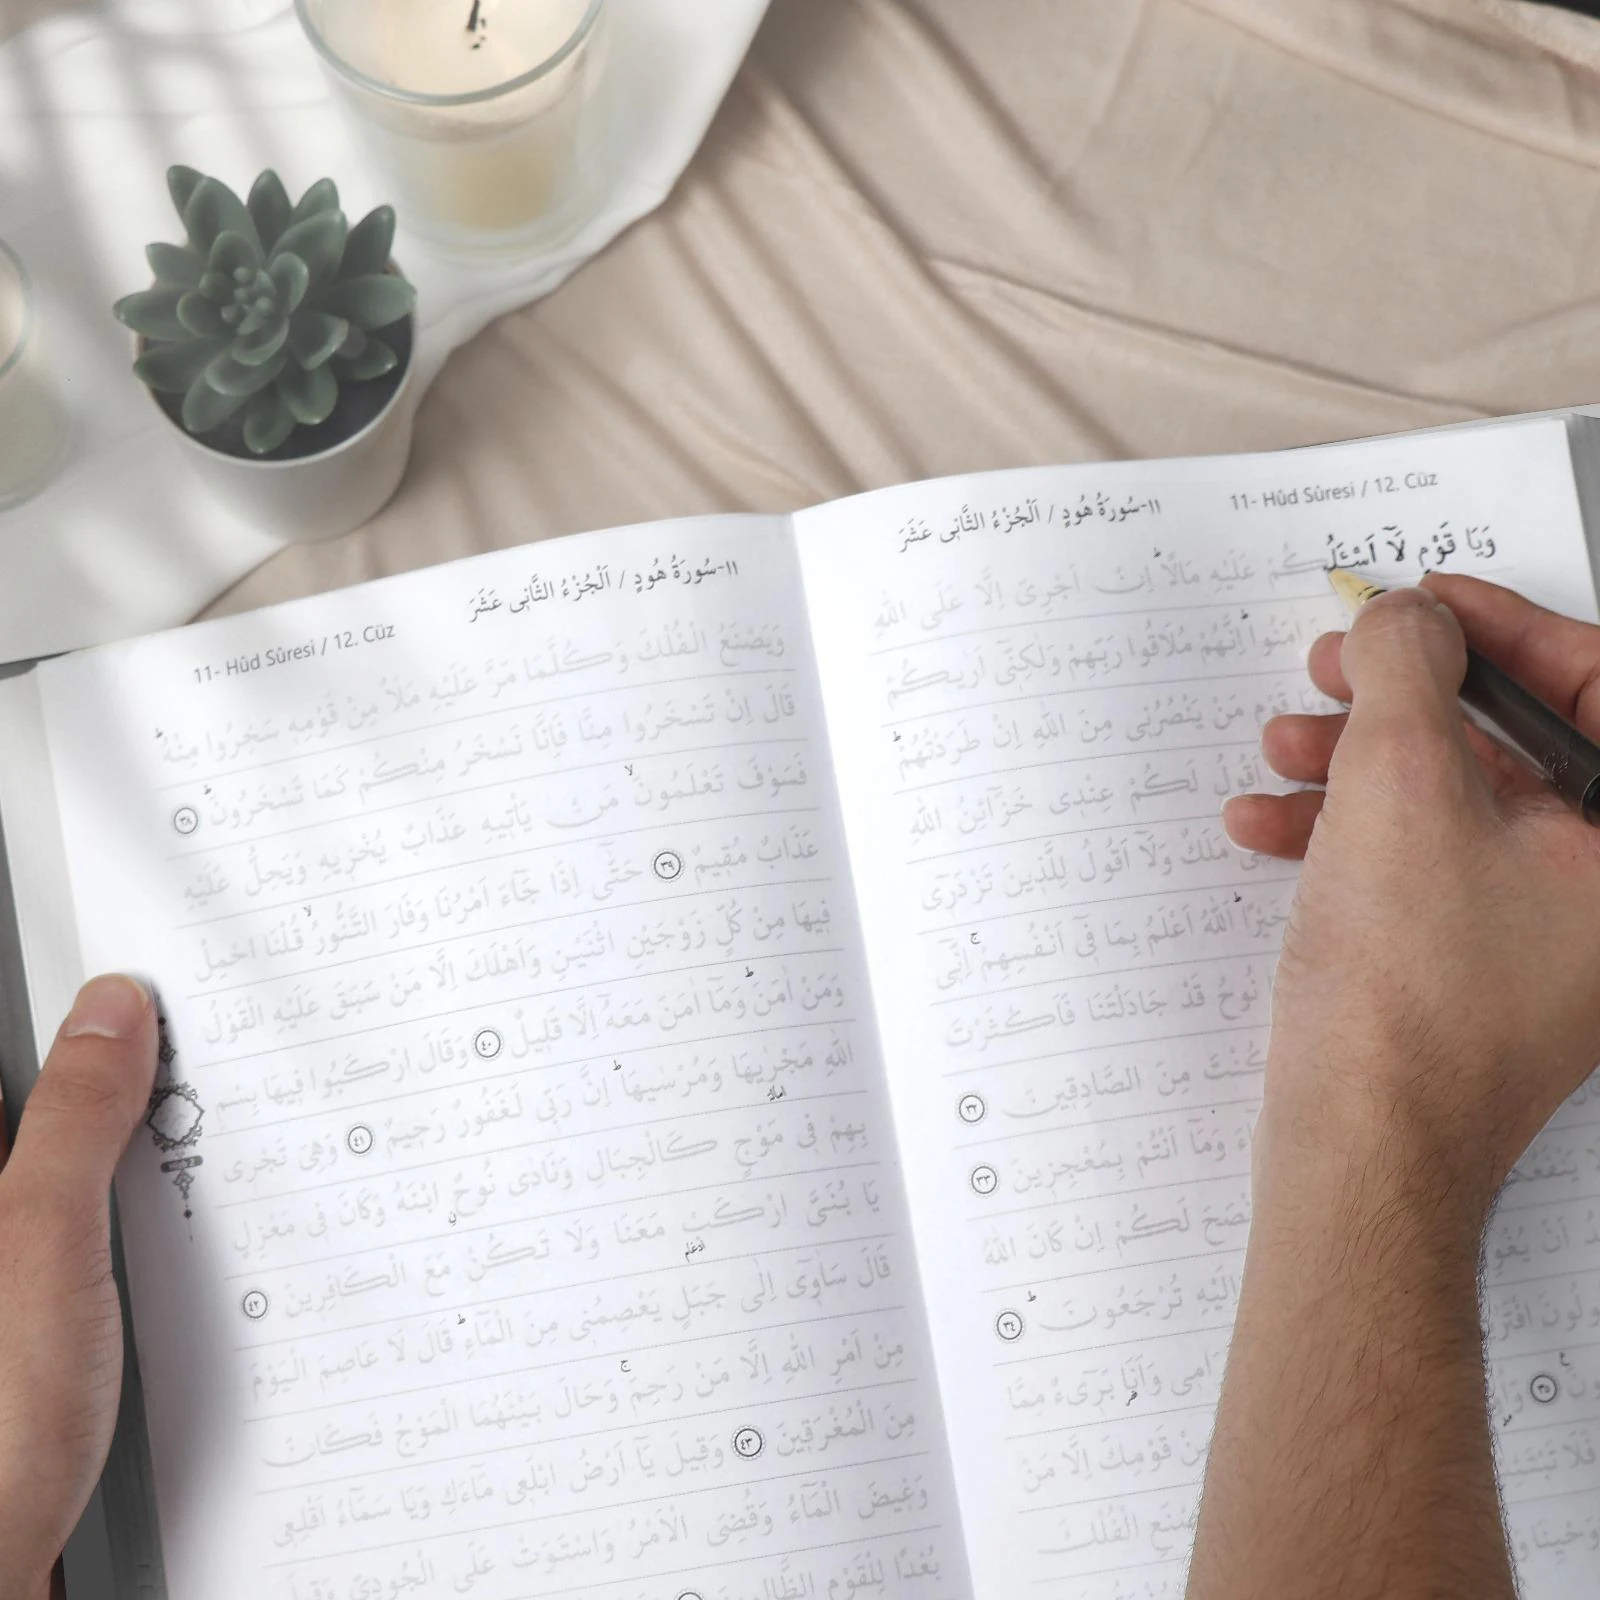 ١١-سُورَةُ هُودٍ / اَلْجُزْءُ الثَّانِى عَشَرَ 11- Hûd Sûresi / 12. Cüz
وَيَا قَوْمِ لَٓا اَسْـَٔلُكُمْ عَلَيْهِ مَالًاۜ اِنْ اَجْرِىَ اِلَّا عَلَى اللّٰهِ
اٰمَنُواۜ اِنَّهُمْ مُلَاقُوا رَبِّهِمْ وَلٰكِنّ۪ٓى اَرٰيكُمْ
وَيَا قَوْمِ مَنْ يَنْصُرُن۪ى مِنَ اللّٰهِ اِنْ طَرَدْتُهُمْۜ
اَقُولُ لَكُمْ عِنْد۪ى خَزَٓائِنُ اللّٰهِ
مَلَكٌ وَلَٓا اَقُولُ لِلَّذ۪ينَ تَزْدَر۪ٓى
خَيْرًاۜ اَللّٰهُ اَعْلَمُ بِمَا ف۪ٓى اَنْفُسِهِمْۚ اِنّ۪ٓى
نُوحُ قَدْ جَادَلْتَنَا فَاَكْثَرْتَ
كُنْتَ مِنَ الصَّادِق۪ينَ ٣٢
وَمَٓا اَنْتُمْ بِمُعْجِز۪ينَ ٣٣
لَكُمْ اِنْ كَانَ اللّٰهُ
اِلَيْهِ تُرْجَعُونَۜ ٣٤
وَاَنَا۬ بَر۪ٓىءٌ مِمَّا
٣٥
قَوْمِكَ اِلَّا مَنْ
الْفُلْكَ
١١-سُورَةُ هُودٍ / اَلْجُزْءُ الثَّانِى عَشَرَ 11- Hûd Sûresi / 12. Cüz
وَيَصْنَعُ الْفُلْكَ وَكُلَّمَا مَرَّ عَلَيْهِ مَلَأٌ مِنْ قَوْمِه۪ سَخِرُوا مِنْهُۜ
قَالَ اِنْ تَسْخَرُوا مِنَّا فَاِنَّا نَسْخَرُ مِنْكُمْ كَمَا تَسْخَرُونَۜ ٣٨
فَسَوْفَ تَعْلَمُونَۙ مَنْ يَأْت۪يهِ عَذَابٌ يُخْز۪يهِ وَيَحِلُّ عَلَيْهِ
عَذَابٌ مُق۪يمٌ ٣٩ حَتّٰٓى اِذَا جَٓاءَ اَمْرُنَا وَفَارَ التَّنُّورُۙ قُلْنَا احْمِلْ
ف۪يهَا مِنْ كُلٍّ زَوْجَيْنِ اثْنَيْنِ وَاَهْلَكَ اِلَّا مَنْ سَبَقَ عَلَيْهِ الْقَوْلُ
وَمَنْ اٰمَنَۜ وَمَٓا اٰمَنَ مَعَهُٓ اِلَّا قَل۪يلٌ ٤٠ وَقَالَ ارْكَبُوا ف۪يهَا بِسْمِ
اللّٰهِ مَجْرٰۭيهَا وَمُرْسٰيهَاۜ اِنَّ رَبّ۪ى لَغَفُورٌ رَح۪يمٌ ٤١ وَهِىَ تَجْر۪ى
بِهِمْ ف۪ى مَوْجٍ كَالْجِبَالِ وَنَادٰى نُوحٌ ابْنَهُ وَكَانَ ف۪ى مَعْزِلٍ
يَا بُنَىَّ ارْكَبْ مَعَنَا وَلَا تَكُنْ مَعَ الْكَافِر۪ينَ ٤٢
قَالَ سَاٰو۪ٓى اِلٰى جَبَلٍ يَعْصِمُن۪ى مِنَ الْمَٓاءِۜ قَالَ لَا عَاصِمَ الْيَوْمَ
مِنْ اَمْرِ اللّٰهِ اِلَّا مَنْ رَحِمَۚ وَحَالَ بَيْنَهُمَا الْمَوْجُ فَكَانَ
مِنَ الْمُغْرَق۪ينَ ٤٣ وَق۪يلَ يَٓا اَرْضُ ابْلَع۪ى مَٓاءَكِ وَيَا سَمَٓاءُ اَقْلِع۪ى
وَغ۪يضَ الْمَٓاءُ وَقُضِىَ الْاَمْرُ وَاسْتَوَتْ عَلَى الْجُودِىِّ وَق۪يلَ
بُعْدًا لِلْقَوْمِ